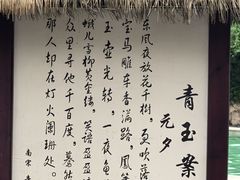 青玉案
元夕
东风夜放花千树，更吹落
宝马雕车香满路。凤
玉壶光转，一夜鱼
蛾儿雪柳黄金缕，笑语盈盈
众里寻他千百度，蓦然
那人却在灯火阑珊处。
南宋